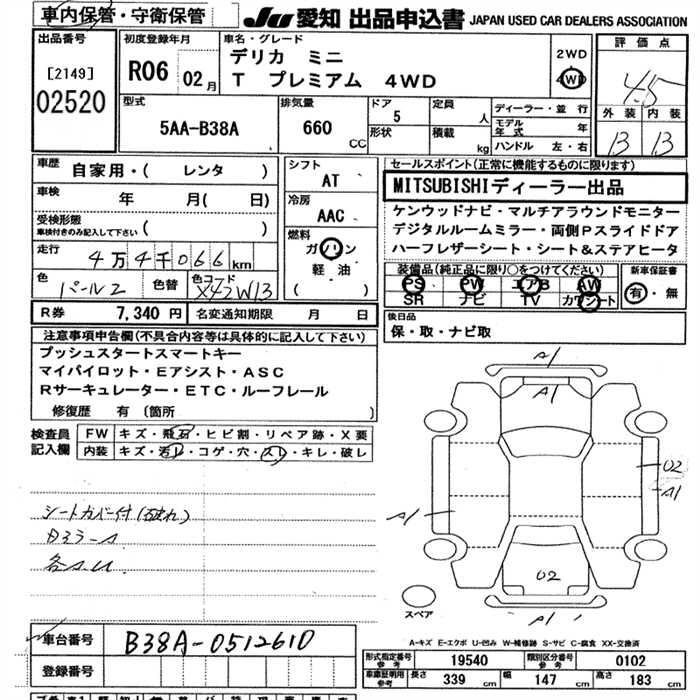 車内保管・守衛保管
JU 愛知 出品申込書 JAPAN USED CAR DEALERS ASSOCIATION
出品番号
[2149]
02520
初度登録年月
R06 02月
車名・グレード
デリカ ミニ
T プレミアム 4WD
2WD
4WD
評価点
4.5
外装 内装
13 13
型式
5AA-B38A
排気量
660 cc
ドア
5
形状
定員 人
積載 kg
ディーラー・並行
モデル年式 年
ハンドル 左・右
車歴 自家用・( レンタ )
車検 年 月( 日)
受検形態
車検付きのみ記入して下さい ( )
走行 4万4千066km
色 パール2 色替 色コード X42W13
シフト
AT
冷房
AAC
燃料
ガソリン
軽油
( )
セールスポイント(正常に機能するものに限ります)
MITSUBISHIディーラー出品
ケンウッドナビ・マルチアラウンドモニター
デジタルルームミラー・両側Pスライドドア
ハーフレザーシート・シート&ステアヒータ
装備品(純正品に限り○をつけてください)
PS PW エアB AW
SR ナビ TV カワシート
新車保証書
有・無
R券 7,340 円 名変通知期限 月 日
後日品
保・取・ナビ取
注意事項申告欄(不具合内容等は具体的に記入して下さい)
プッシュスタートスマートキー
マイパイロット・Eアシスト・ASC
Rサーキュレーター・ETC・ルーフレール
修復歴 有 (箇所 )
検査員記入欄
FW キズ・飛石・ヒビ割・リペア跡・X要
内装 キズ・汚レ・コゲ・穴・スレ・キレ・破レ
シートカバー付(破れ)
DミラーA
A1
A1
A1
02
A1
02
A1
スペア
A-キズ E-エクボ U-凹み W-補修跡 S-サビ C-腐食 XX-交換済
車台番号 B38A-0512610
登録番号
型式指定番号 参考 19540 類別区分番号 参考 0102
車庫証明用 参考 長さ 339 cm 幅 147 cm 高さ 183 cm